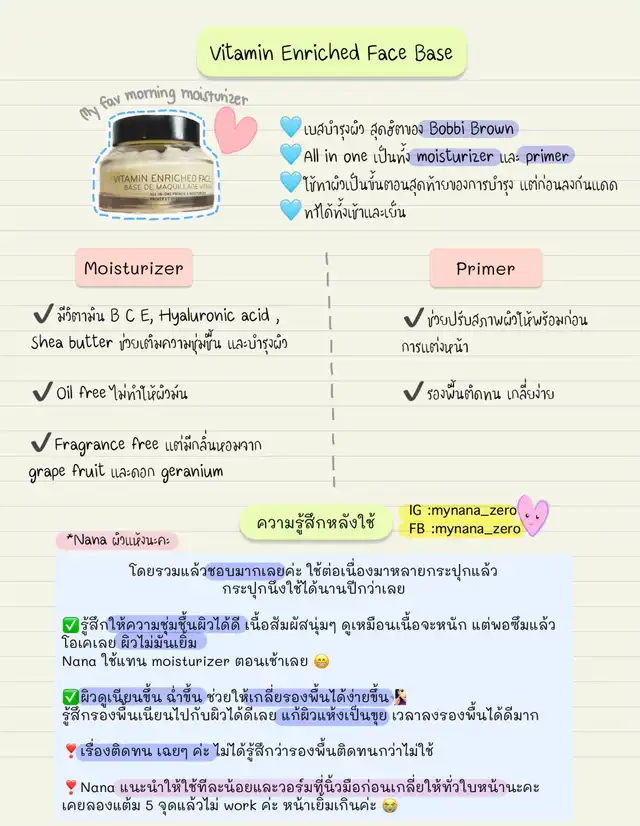 Vitamin Enriched Face Base
My fav morning moisturizer
VITAMIN ENRICHED FACE
BASE DE MAQUILLAGE VITA
เบสบำรุงผิว สุดฮิตของ Bobbi Brown
All in one เป็นทั้ง moisturizer และ primer
ใช้ทาผิวเป็นขั้นตอนสุดท้ายของการบำรุง แต่ก่อนลงกันแดด
ทาได้ทั้งเช้าและเย็น
Moisturizer
✔มีวิตามิน B C E, Hyaluronic acid ,
Shea butter ช่วยเติมความชุ่มชื้น และบำรุงผิว
✔Oil free ไม่ทำให้ผิวมัน
✔Fragrance free แต่มีกลิ่นหอมจาก
grape fruit และดอก geranium
Primer
✔ช่วยปรับสภาพผิวให้พร้อมก่อน
การแต่งหน้า
✔รองพื้นติดทน เกลี่ยง่าย
ความรู้สึกหลังใช้
IG :mynana_zero
FB :mynana_zero
*Nana ผิวแห้งนะคะ
โดยรวมแล้วชอบมากเลยค่ะ ใช้ต่อเนื่องมาหลายกระปุกแล้ว
กระปุกนึงใช้ได้นานปีกว่าเลย
✅รู้สึกให้ความชุ่มชื้นผิวได้ดี เนื้อสัมผัสนุ่มๆ ดูเหมือนเนื้อจะหนัก แต่พอซึมแล้ว
โอเคเลย ผิวไม่มันเยิ้ม
Nana ใช้แทน moisturizer ตอนเช้าเลย 😁
✅ผิวดูเนียนขึ้น ฉ่ำขึ้น ช่วยให้เกลี่ยรองพื้นได้ง่ายขึ้น
รู้สึกรองพื้นเนียนไปกับผิวได้ดีเลย แก้ผิวแห้งเป็นขุย เวลาลงรองพื้นได้ดีมาก
❣เรื่องติดทน เฉยๆ ค่ะ ไม่ได้รู้สึกว่ารองพื้นติดทนกว่าไม่ใช้
❣Nana แนะนำให้ใช้ทีละน้อยและวอร์มที่นิ้วมือก่อนเกลี่ยให้ทั่วใบหน้านะคะ
เคยลองแต้ม 5 จุดแล้วไม่ work ค่ะ หน้าเยิ้มเกินค่ะ 😭